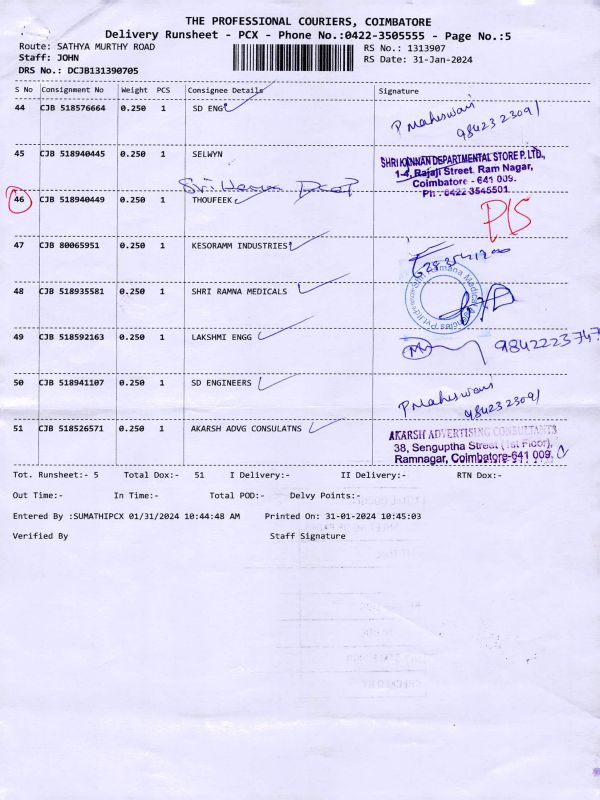 THE PROFESSIONAL COURIERS, COIMBATORE
Delivery Runsheet - PCX - Phone No.:0422-3505555 - Page No.:5
Route: SATHYA MURTHY ROAD
RS No.: 1313907
Staff: JOHN
RS Date: 31-Jan-2024
DRS No.: DCJB131390705
S No Consignment No Weight PCS Consignee Details Signature
44 CJB 518576664 0.250 1 SD ENG
P Maheswari
9842322091
45 CJB 518940445 0.250 1 SELWYN
SHRI KANNAN DEPARTMENTAL STORE P. LTD.,
1-4, Rajaji Street, Ram Nagar,
Coimbatore - 641 009.
Ph : 0422 3545501
46 CJB 518940449 0.250 1 THOUFEEK
P/S
47 CJB 80065951 0.250 1 KESORAMM INDUSTRIES
48 CJB 518935581 0.250 1 SHRI RAMNA MEDICALS
49 CJB 518592163 0.250 1 LAKSHMI ENGG
9842223747
50 CJB 518941107 0.250 1 SD ENGINEERS
P Maheswari
9842322091
51 CJB 518526571 0.250 1 AKARSH ADVG CONSULATNS
AKARSH ADVERTISING CONSULTANTS
38, Senguptha Street (1st Floor),
Ramnagar, Coimbatore-641 009.
Tot. Runsheet:- 5 Total Dox:- 51 I Delivery:- II Delivery:- RTN Dox:-
Out Time:- In Time:- Total POD:- Delvy Points:-
Entered By :SUMATHIPCX 01/31/2024 10:44:48 AM Printed On: 31-01-2024 10:45:03
Verified By Staff Signature